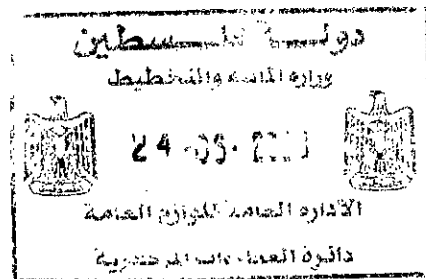 دولة فلسطين
وزارة المالية والتخطيط
24
الادارة العامة للوازم العامة
دائرة العطاءات المركزية